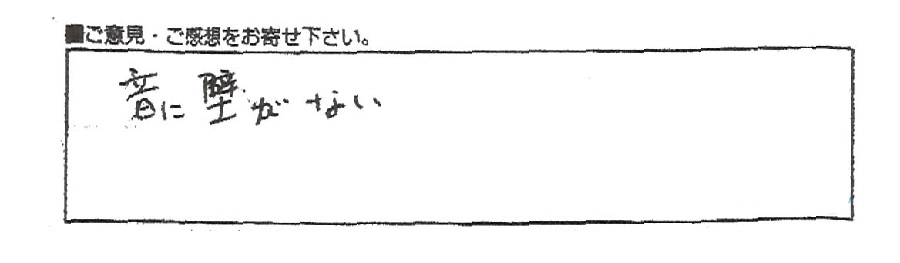 ■ご意見・ご感想をお寄せ下さい。
音に壁がない